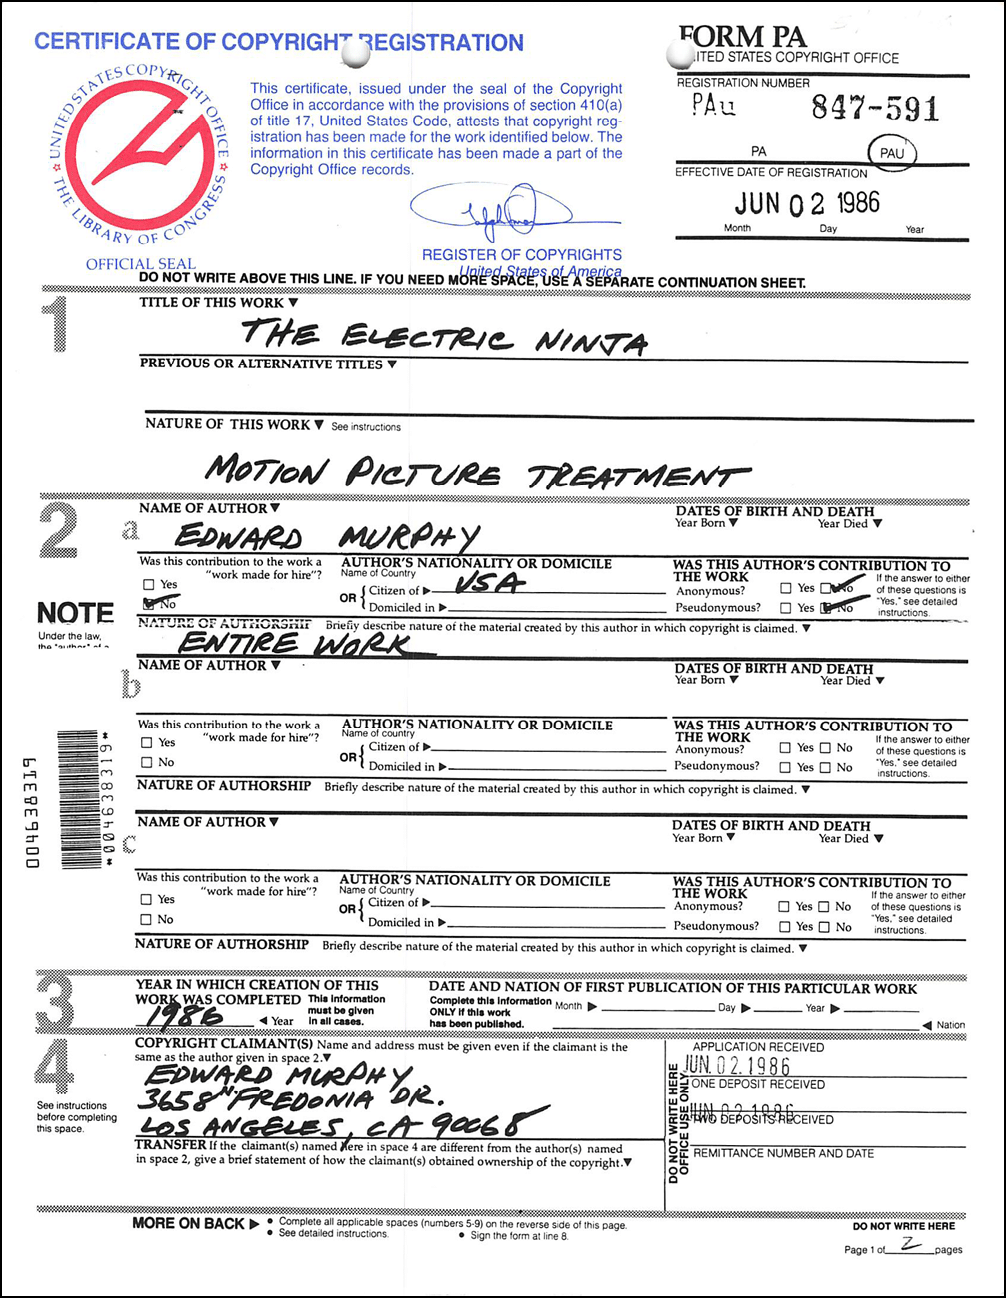 CERTIFICATE OF COPYRIGHT REGISTRATION
FORM PA
UNITED STATES COPYRIGHT OFFICE
UNITED STATES COPYRIGHT OFFICE
THE LIBRARY OF CONGRESS
OFFICIAL SEAL
This certificate, issued under the seal of the Copyright
Office in accordance with the provisions of section 410(a)
of title 17, United States Code, attests that copyright reg-
istration has been made for the work identified below. The
information in this certificate has been made a part of the
Copyright Office records.
REGISTER OF COPYRIGHTS
United States of America
REGISTRATION NUMBER
PAu 847-591
PA PAU
EFFECTIVE DATE OF REGISTRATION
JUN 02 1986
Month Day Year
DO NOT WRITE ABOVE THIS LINE. IF YOU NEED MORE SPACE, USE A SEPARATE CONTINUATION SHEET.
1
TITLE OF THIS WORK ▼
THE ELECTRIC NINJA
PREVIOUS OR ALTERNATIVE TITLES ▼
NATURE OF THIS WORK ▼ See instructions
MOTION PICTURE TREATMENT
2
a
NAME OF AUTHOR ▼
EDWARD MURPHY
DATES OF BIRTH AND DEATH
Year Born ▼ Year Died ▼
Was this contribution to the work a
"work made for hire"?
Yes
No
AUTHOR'S NATIONALITY OR DOMICILE
Name of Country
OR { Citizen of ▶ USA
Domiciled in ▶
WAS THIS AUTHOR'S CONTRIBUTION TO
THE WORK
Anonymous? Yes No
Pseudonymous? Yes No
If the answer to either
of these questions is
"Yes," see detailed
instructions.
NOTE
Under the law,
the "author" of a
NATURE OF AUTHORSHIP Briefly describe nature of the material created by this author in which copyright is claimed. ▼
ENTIRE WORK
b
NAME OF AUTHOR ▼
DATES OF BIRTH AND DEATH
Year Born ▼ Year Died ▼
Was this contribution to the work a
"work made for hire"?
Yes
No
AUTHOR'S NATIONALITY OR DOMICILE
Name of country
OR { Citizen of ▶
Domiciled in ▶
WAS THIS AUTHOR'S CONTRIBUTION TO
THE WORK
Anonymous? Yes No
Pseudonymous? Yes No
If the answer to either
of these questions is
"Yes," see detailed
instructions.
NATURE OF AUTHORSHIP Briefly describe nature of the material created by this author in which copyright is claimed. ▼
*004638319*
004638319
c
NAME OF AUTHOR ▼
DATES OF BIRTH AND DEATH
Year Born ▼ Year Died ▼
Was this contribution to the work a
"work made for hire"?
Yes
No
AUTHOR'S NATIONALITY OR DOMICILE
Name of Country
OR { Citizen of ▶
Domiciled in ▶
WAS THIS AUTHOR'S CONTRIBUTION TO
THE WORK
Anonymous? Yes No
Pseudonymous? Yes No
If the answer to either
of these questions is
"Yes," see detailed
instructions.
NATURE OF AUTHORSHIP Briefly describe nature of the material created by this author in which copyright is claimed. ▼
3
YEAR IN WHICH CREATION OF THIS
WORK WAS COMPLETED This information
must be given
in all cases.
1986 ◀ Year
DATE AND NATION OF FIRST PUBLICATION OF THIS PARTICULAR WORK
Complete this information
ONLY if this work
has been published.
Month ▶ Day ▶ Year ▶
◀ Nation
4
See instructions
before completing
this space.
COPYRIGHT CLAIMANT(S) Name and address must be given even if the claimant is the
same as the author given in space 2.▼
EDWARD MURPHY
3658 N. FREDONIA DR.
LOS ANGELES, CA 90068
TRANSFER If the claimant(s) named here in space 4 are different from the author(s) named
in space 2, give a brief statement of how the claimant(s) obtained ownership of the copyright.▼
DO NOT WRITE HERE
OFFICE USE ONLY
APPLICATION RECEIVED
JUN.02.1986
ONE DEPOSIT RECEIVED
JUN 02 1986
TWO DEPOSITS RECEIVED
REMITTANCE NUMBER AND DATE
MORE ON BACK ▶ • Complete all applicable spaces (numbers 5-9) on the reverse side of this page.
• See detailed instructions. • Sign the form at line 8.
DO NOT WRITE HERE
Page 1 of 2 pages